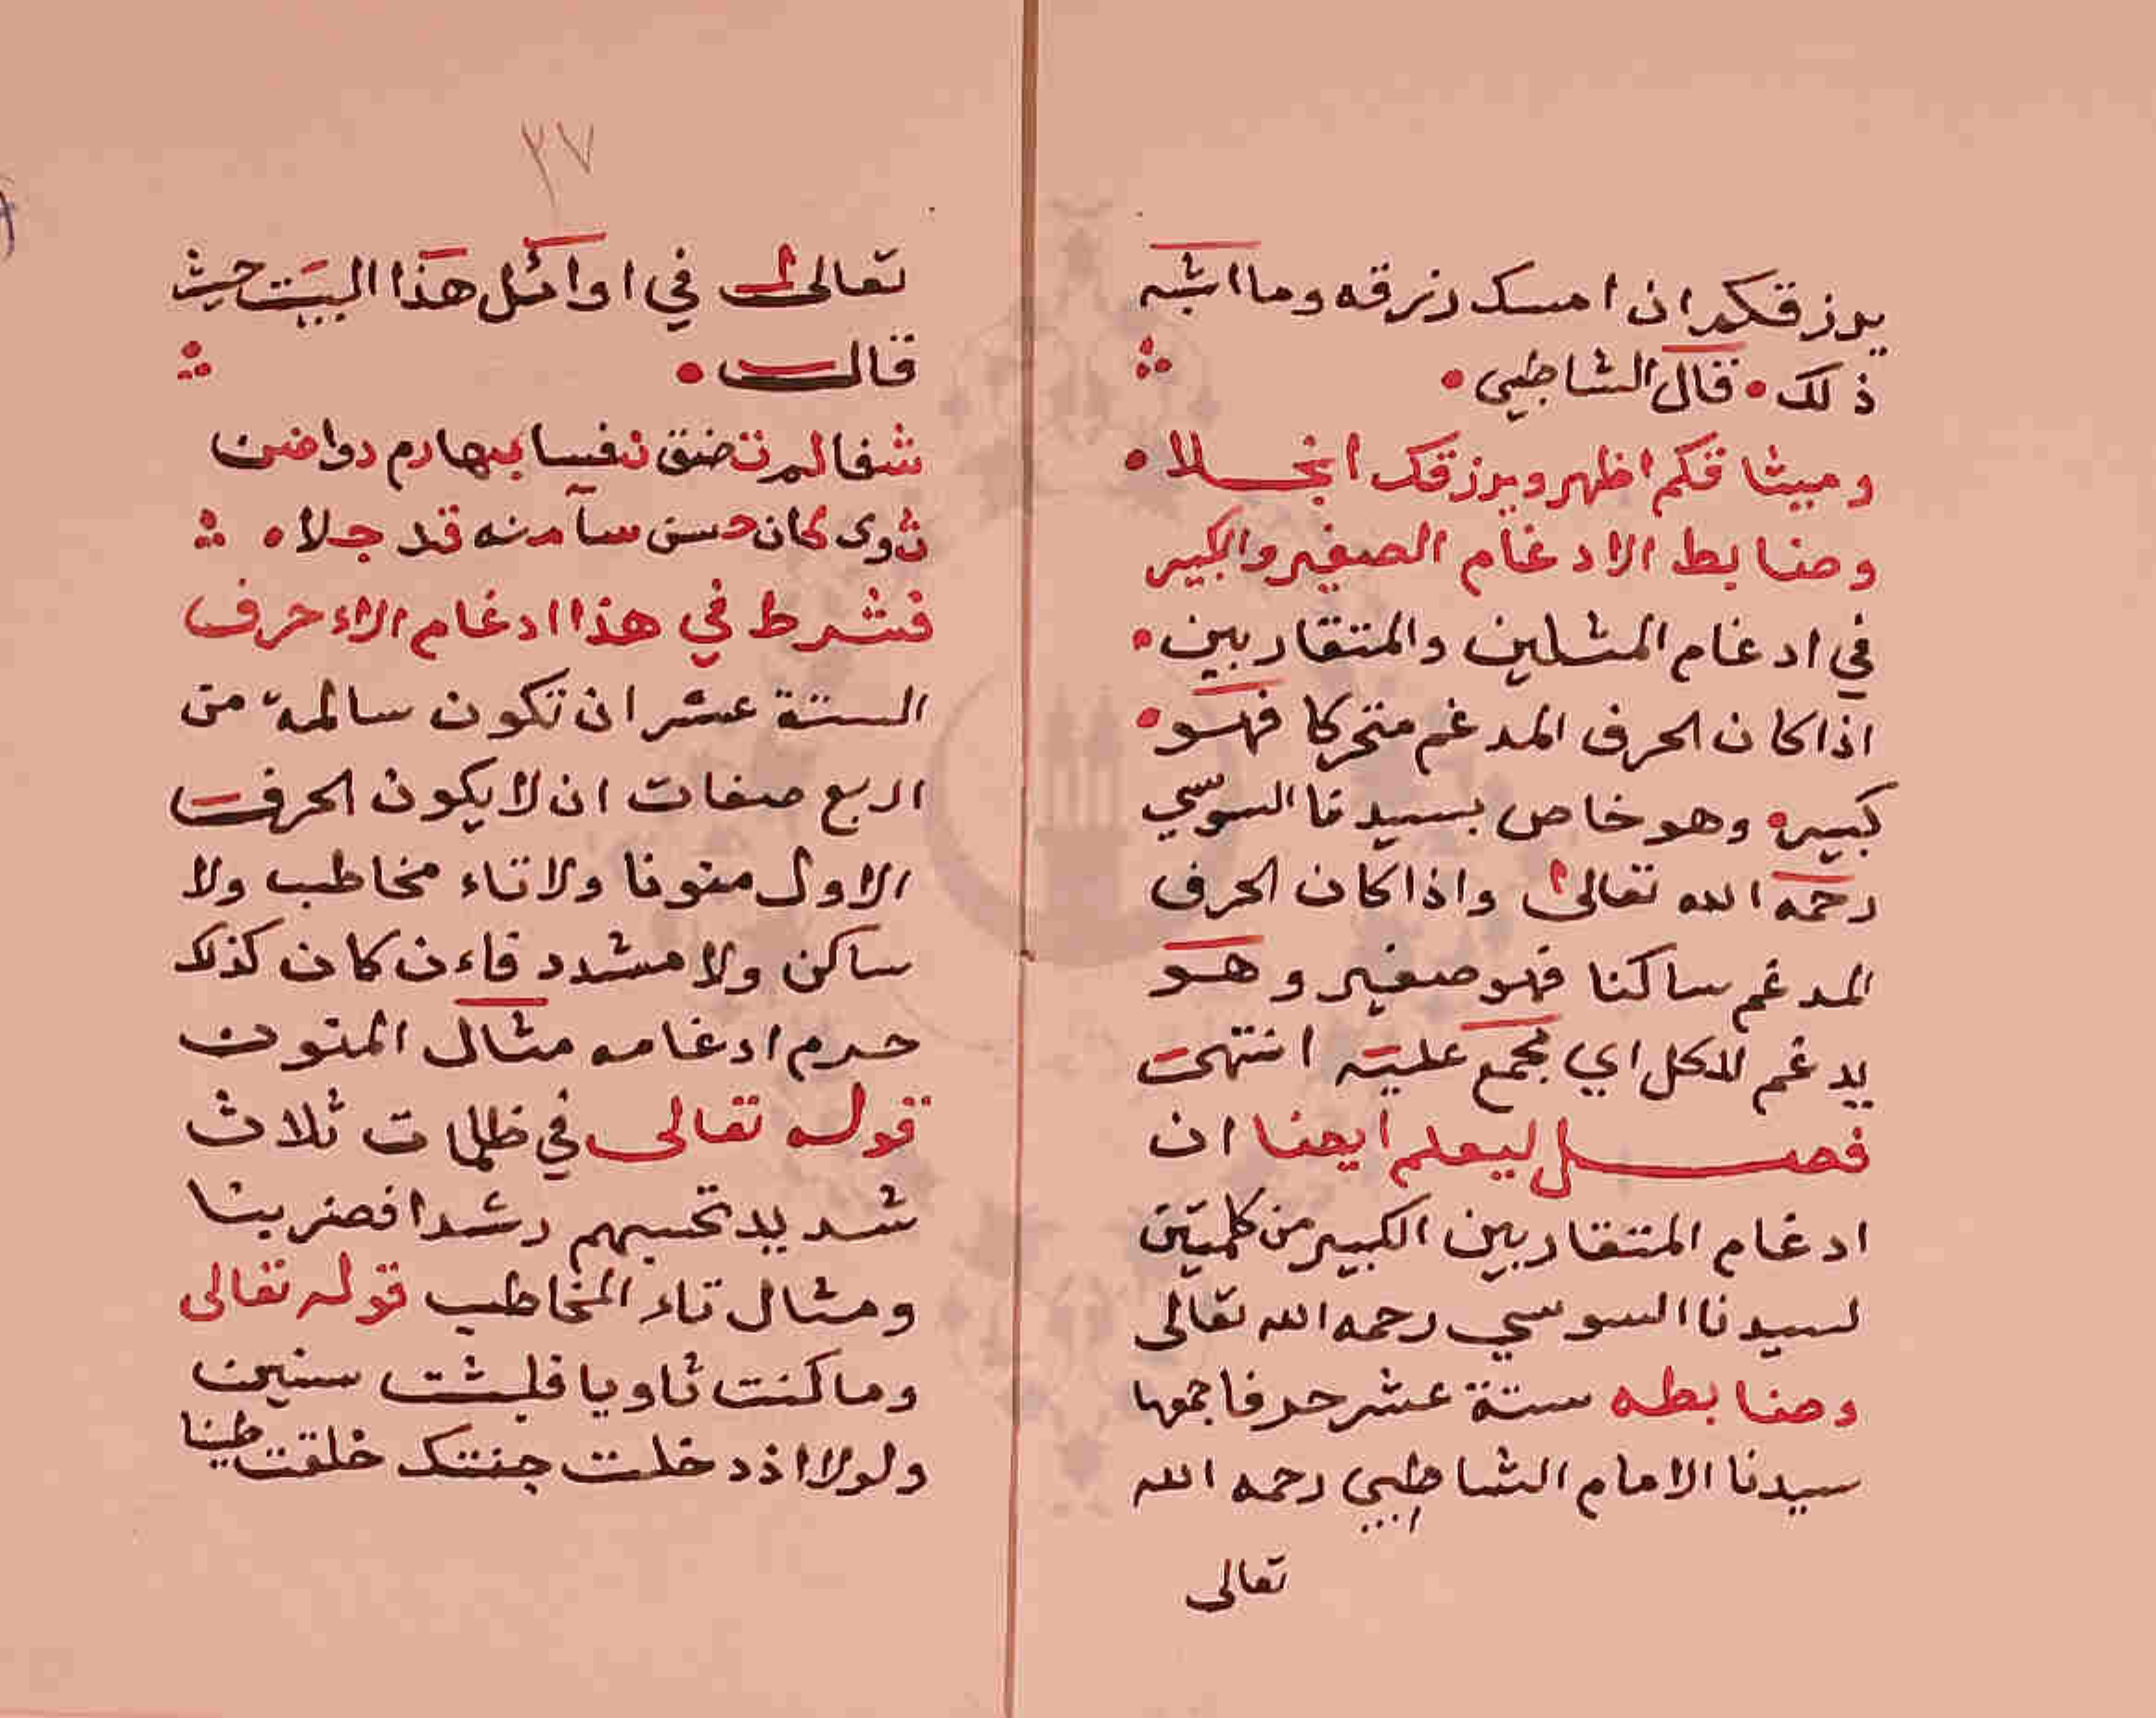 يرزقكم ان امسك رزقه وما اشبه
ذلك • قال الشاطبي •
وميثاقكم اظهر ويرزقك انجلا •
وضابط الادغام الصغير والكبير
في ادغام المثلين والمتقاربين •
اذا كان الحرف المدغم متحركا فهو •
كبير • وهو خاص بسيدنا السوسي
رحمه الله تعالى واذا كان الحرف
المدغم ساكنا فهو صغير وهو
يدغم للكل اي مجمع عليه انتهت
فصل ليعلم ايضا ان
ادغام المتقاربين الكبير من كلمتين
لسيدنا السوسي رحمه الله تعالى
وضابطه ستة عشر حرفا جمعها
سيدنا الامام الشاطبي رحمه الله
تعالى
٣٧
تعالى في اوائل هذا البيت حيث
قال •
شفا لم تضق نفسا بها رم دوا ضن
ثوى كان حسن سآ منه قد جلا •
فشرط في هذا ادغام الاءحرف
الستة عشر ان تكون سالمة من
اربع صفات ان لا يكون الحرف
الاول منونا ولا تاء مخاطب ولا
ساكن ولا مشدد فاءن كان كذلك
حرم ادغامه مثال المنون
قوله تعالى في ظلمات ثلاث
شديد تحسبهم رشدا فضربنا
ومثال تاء المخاطب قوله تعالى
وما كنت ثاويا فلبثت سنين
ولولا اذ دخلت جنتك خلقت طينا